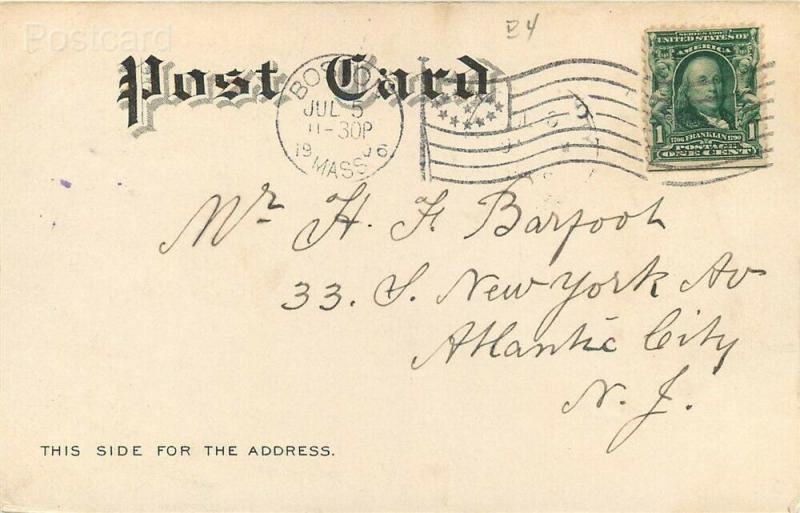 Postcard
B4
Post Card
BOSTON
JUL 5
11-30P
1906
MASS.
SERIES 1902
UNITED STATES OF
AMERICA
1 1706 FRANKLIN 1790 1
POSTAGE
ONE CENT
Mr H. F. Barfoot
33. S. New York Av
Atlantic City
N. J.
THIS SIDE FOR THE ADDRESS.